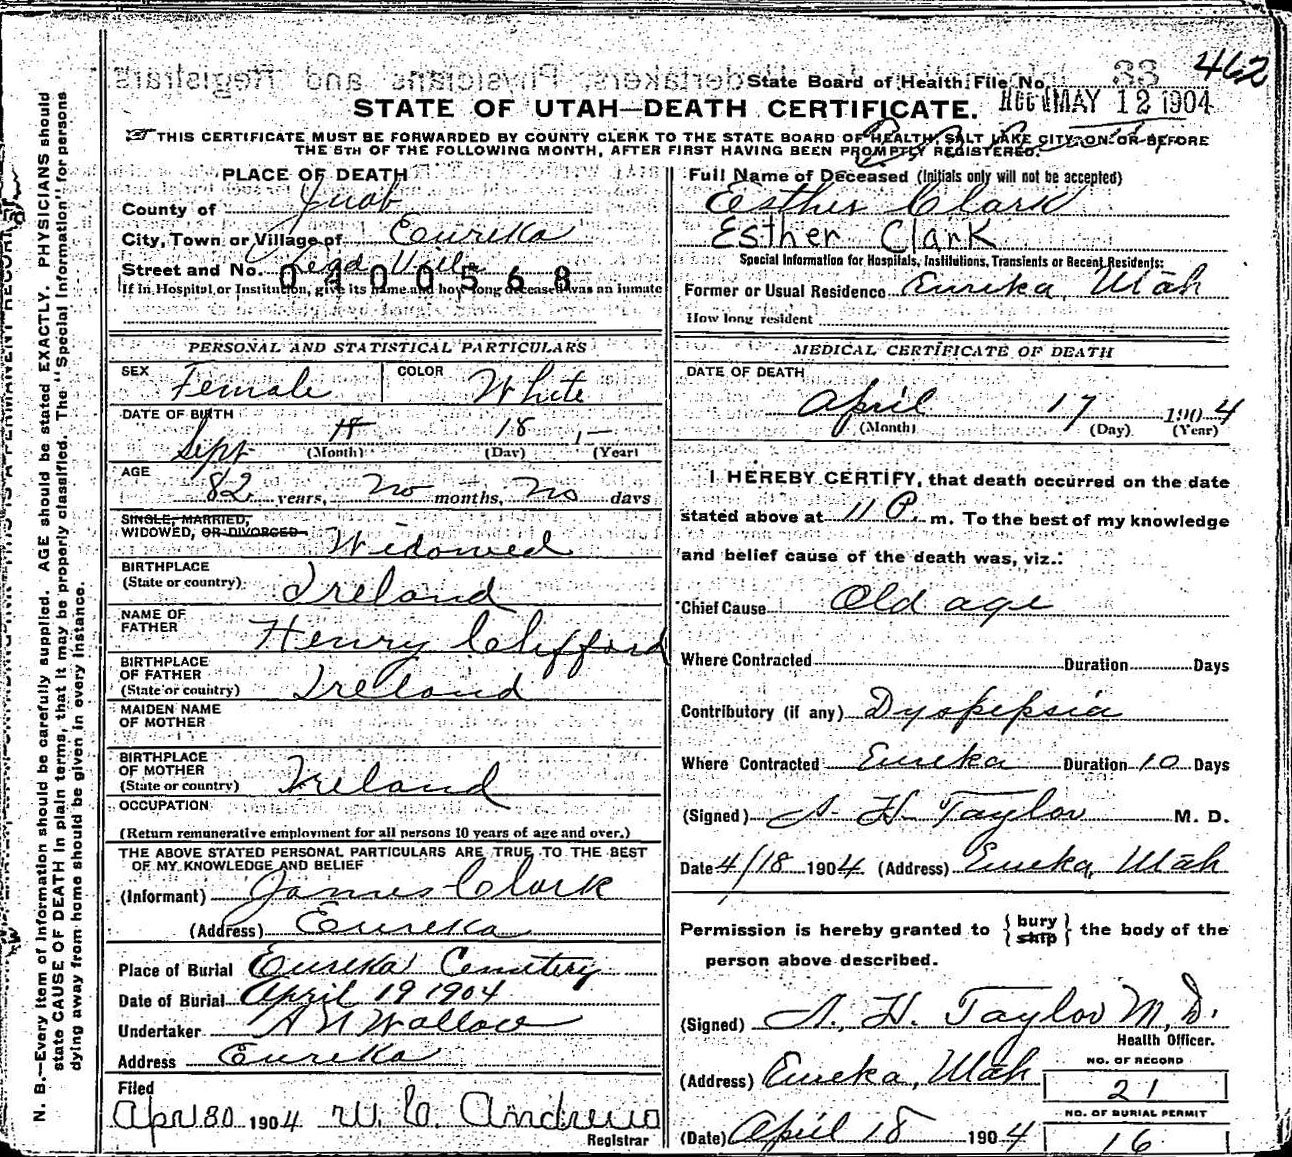 462
State Board of Health File No. 33
MAY 12 1904
STATE OF UTAH—DEATH CERTIFICATE.
THIS CERTIFICATE MUST BE FORWARDED BY COUNTY CLERK TO THE STATE BOARD OF HEALTH, SALT LAKE CITY, ON OR BEFORE
THE 5TH OF THE FOLLOWING MONTH, AFTER FIRST HAVING BEEN PROMPTLY REGISTERED.
PLACE OF DEATH
County of Juab
City, Town or Village of Eureka
Street and No.
0400568
If in Hospital or Institution, give its name and how long deceased was an inmate
Full Name of Deceased (Initials only will not be accepted)
Esther Clark
Esther Clark
Special Information for Hospitals, Institutions, Transients or Recent Residents:
Former or Usual Residence Eureka, Utah
How long resident
PERSONAL AND STATISTICAL PARTICULARS
SEX Female COLOR White
DATE OF BIRTH
Sept 18
(Month) (Day) (Year)
AGE
82 years, no months, no days
SINGLE, MARRIED,
WIDOWED, OR DIVORCED Widowed
BIRTHPLACE
(State or country) Ireland
NAME OF
FATHER Henry Clifford
BIRTHPLACE
OF FATHER
(State or country) Ireland
MAIDEN NAME
OF MOTHER
BIRTHPLACE
OF MOTHER
(State or country) Ireland
OCCUPATION
(Return remunerative employment for all persons 10 years of age and over.)
THE ABOVE STATED PERSONAL PARTICULARS ARE TRUE TO THE BEST
OF MY KNOWLEDGE AND BELIEF
(Informant) James Clark
(Address) Eureka
Place of Burial Eureka Cemetery
Date of Burial April 19 1904
Undertaker A N Wallace
Address Eureka
Filed
Apr 30 1904 W. C. Andrews
Registrar
MEDICAL CERTIFICATE OF DEATH
DATE OF DEATH
April 17 1904
(Month) (Day) (Year)
I HEREBY CERTIFY, that death occurred on the date
stated above at 11 P. m. To the best of my knowledge
and belief cause of the death was, viz.:
Chief Cause Old age
Where Contracted Duration Days
Contributory (if any) Dyspepsia
Where Contracted Eureka Duration 10 Days
(Signed) S. H. Taylor M. D.
Date 4/18 1904. (Address) Eureka, Utah
Permission is hereby granted to { bury
ship } the body of the
person above described.
(Signed) S. H. Taylor M. D.
Health Officer.
(Address) Eureka, Utah
NO. OF RECORD
21
NO. OF BURIAL PERMIT
(Date) April 18 1904 16
N. B.—Every item of information should be carefully supplied. AGE should be stated EXACTLY. PHYSICIANS should
state CAUSE OF DEATH in plain terms, that it may be properly classified. The "Special Information" for persons
dying away from home should be given in every instance.